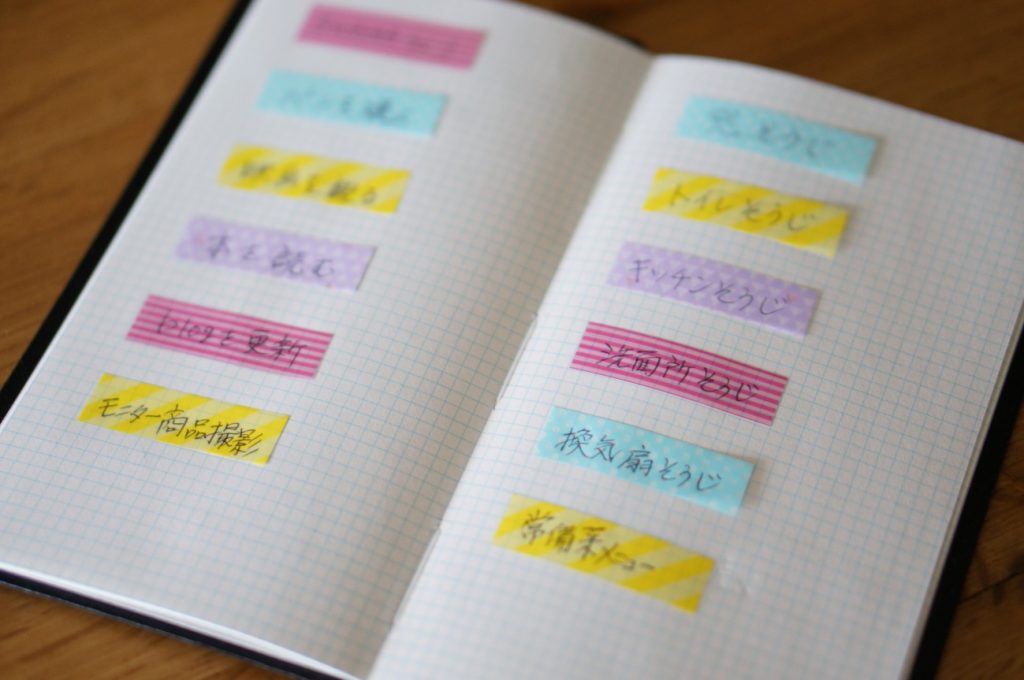 パンを焼く
映画を観る
本を読む
blogを更新
モニター商品撮影
窓そうじ
トイレそうじ
キッチンそうじ
洗面所そうじ
換気扇そうじ
常備菜メニュー